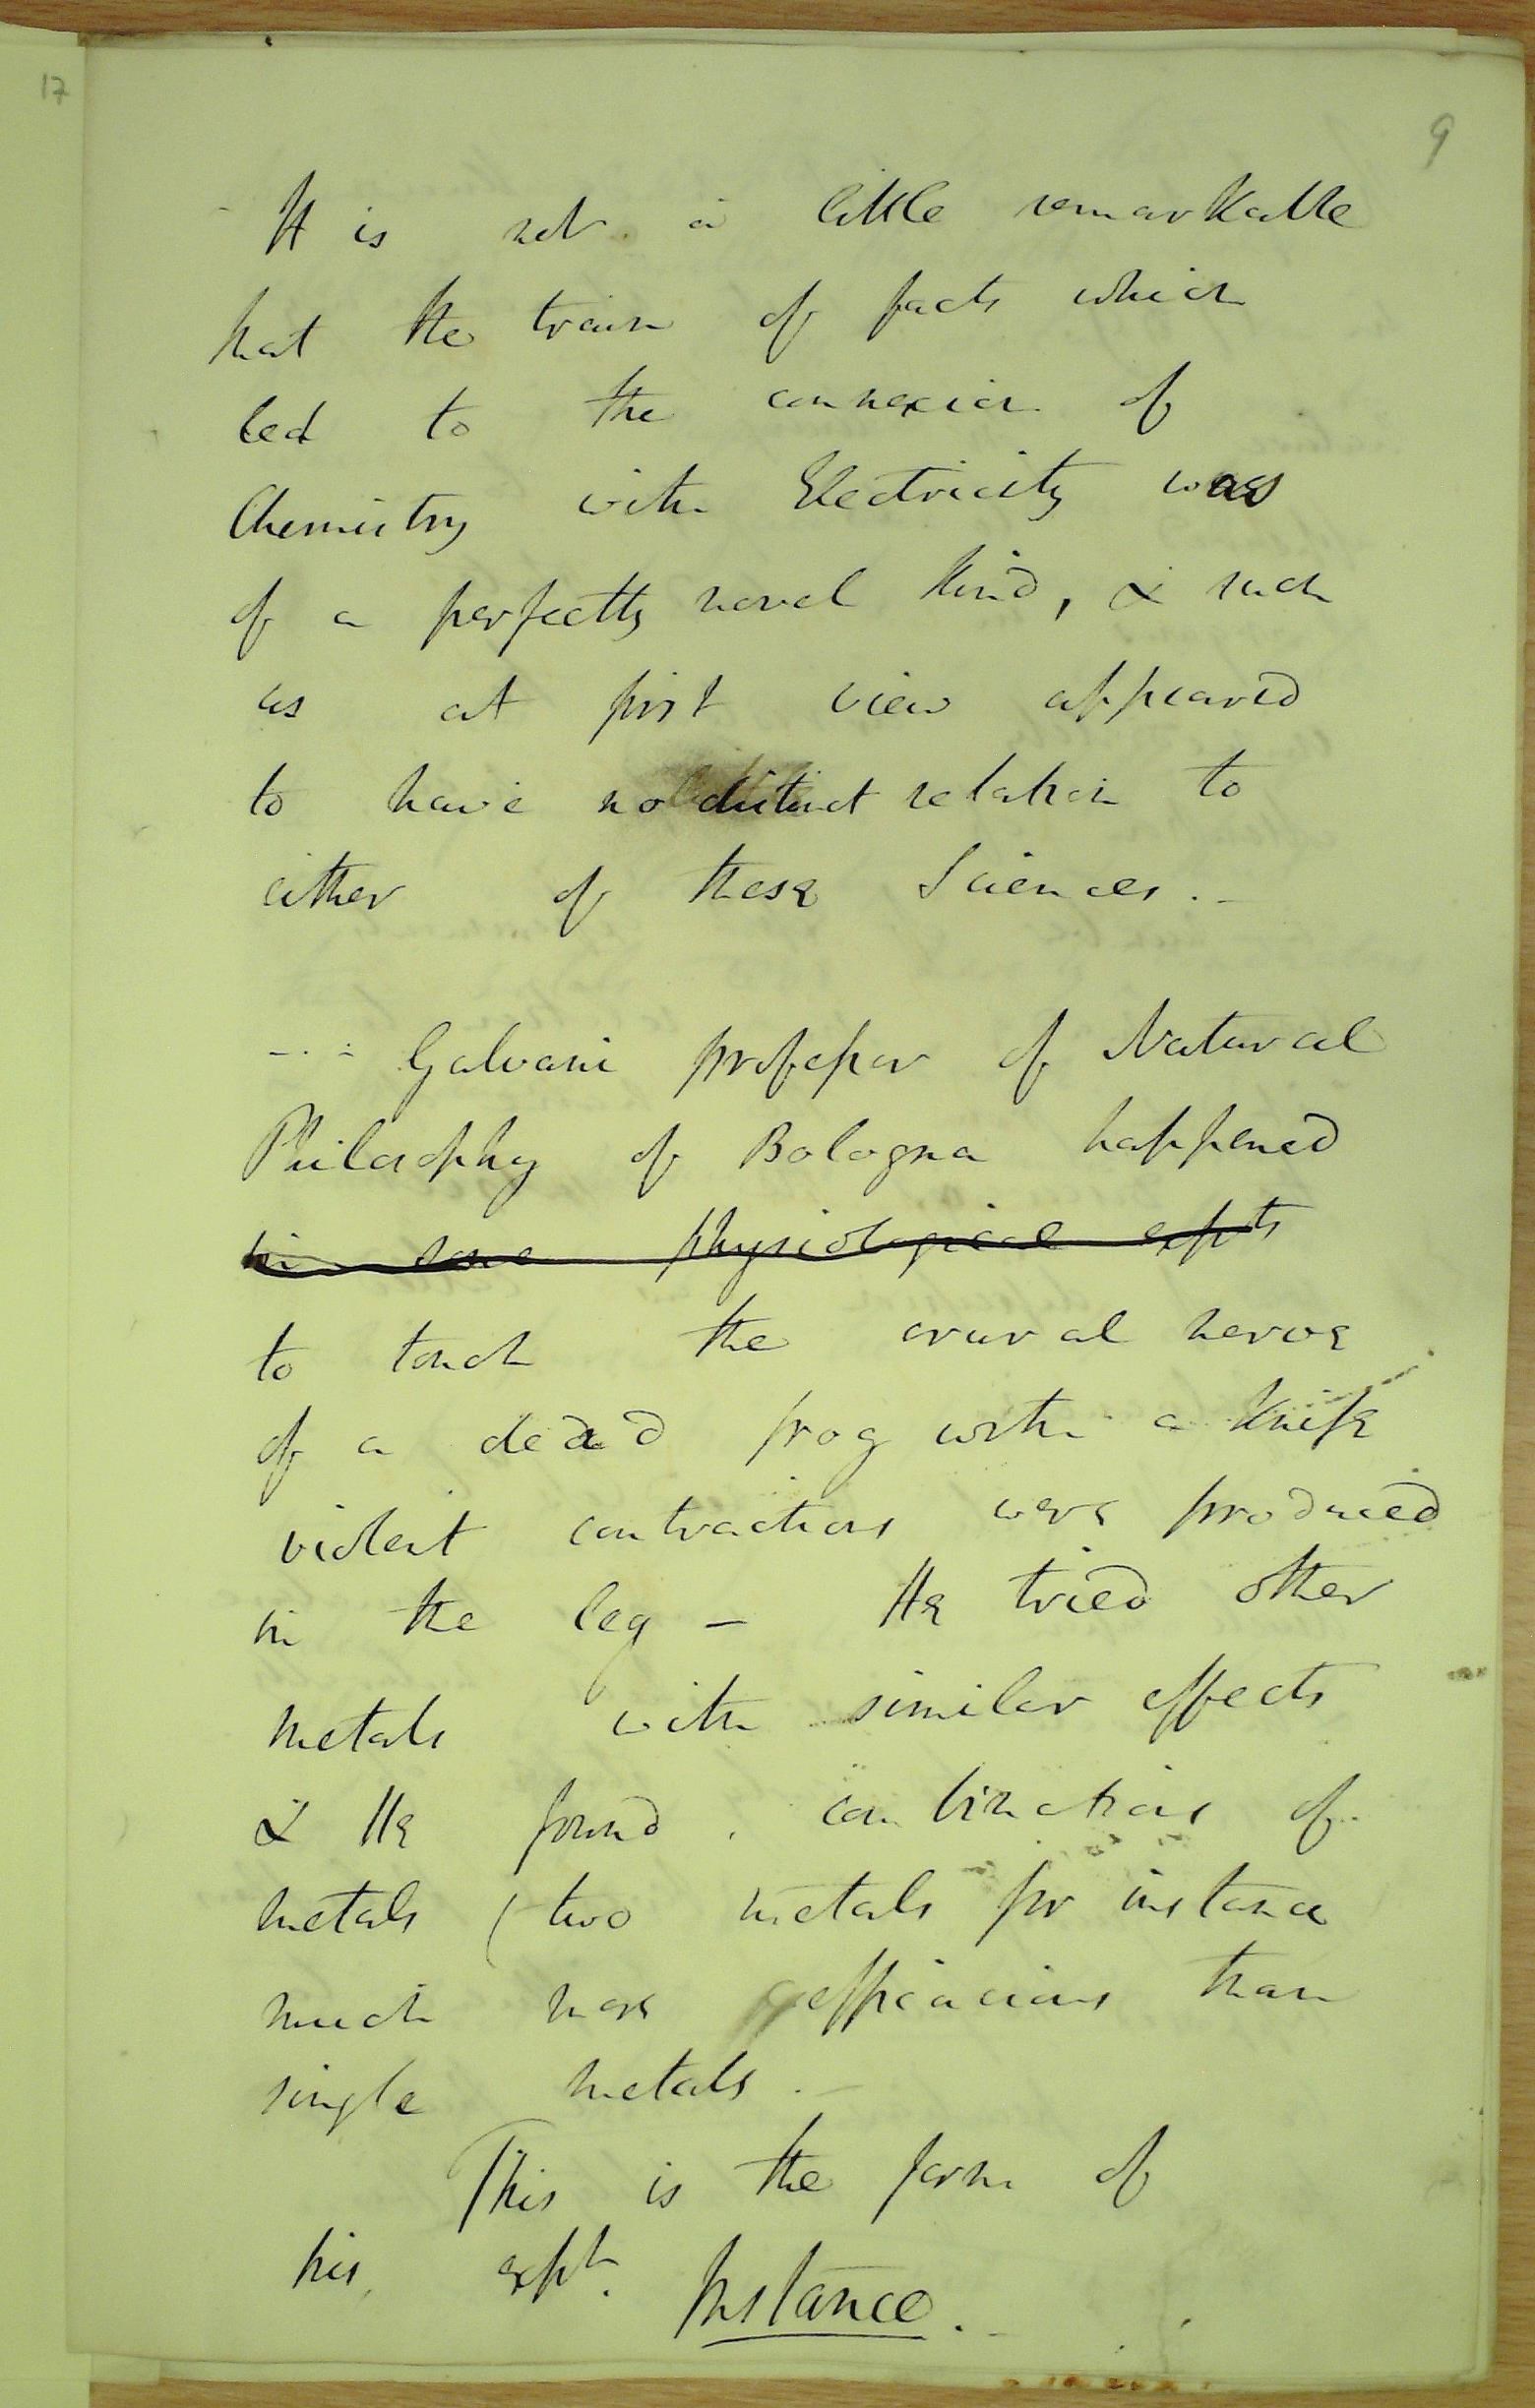 17
9
It is not a little remarkable
that the train of facts which
led to the connexion of
Chemistry with Electricity was
of a perfectly novel kind, & such
as at first view appeared
to have no distinct relation to
either of these Sciences. -
- . - Galvani professor of Natural
Philosophy of Bologna happened
in some physiological expts
to touch the crural nerve
of a dead frog with a knife
violent contractions were produced
in the leg - He tried other
metals with similar effects
& He found combinations of
metals (two metals for instance
much more efficacious than
single metals. -
This is the form of
his expt. Instance. -